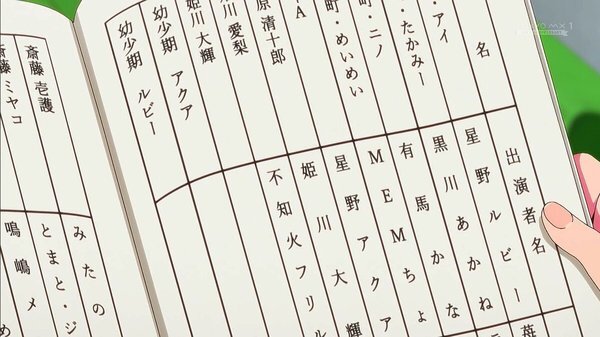 名
・アイ
・たかみー
町・ニノ
町・めいめい
A
原清十郎
川愛梨
姫川大輝
幼少期 アクア
幼少期 ルビー
出演者名
星野ルビー
黒川あかね
有馬かな
MEMちょ
星野アクア
姫川大輝
不知火フリル
苺
斎藤壱護
斎藤ミヤコ
みたの
とまと・ジ
鳴嶋メ